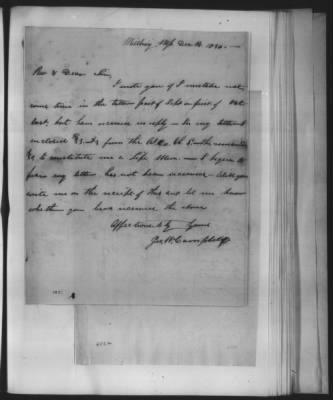 Dec 14 1840.
Rev & Dear Sir,
I wrote you if I mistake not
some time in the latter part of Sept or first of Oct
last, but have received no reply - In my letter I
enclosed from the
to constitute me a Life Mem. - I begin to
fear my letter has not been received - Will you
write me on the receipt of this and let me know
whether you have received the above
Affectionately Yours
Campbell